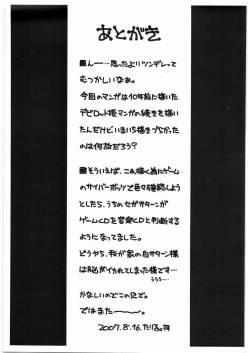 あとがき
■んー…思ったよりツンデレって
むつかしいなぁ。
今回のマンガは10年前に描いた
デビロット姫マンガの続きを描い
たんだけどいまいち描きづらかった
のは何故だろう？
■そういえば、これ描く為にゲーム
のサイバーボッツで色々確認しよう
としたら、うちのセガサターンが
ゲームCDを音楽CDと判断する
ようになってました。
どうやら、我が家の白サターン様
はRAMがイカれてしまった様です…
うぅ…
かなしいのでこの辺で。
ではまた〜。
2007.8.16.